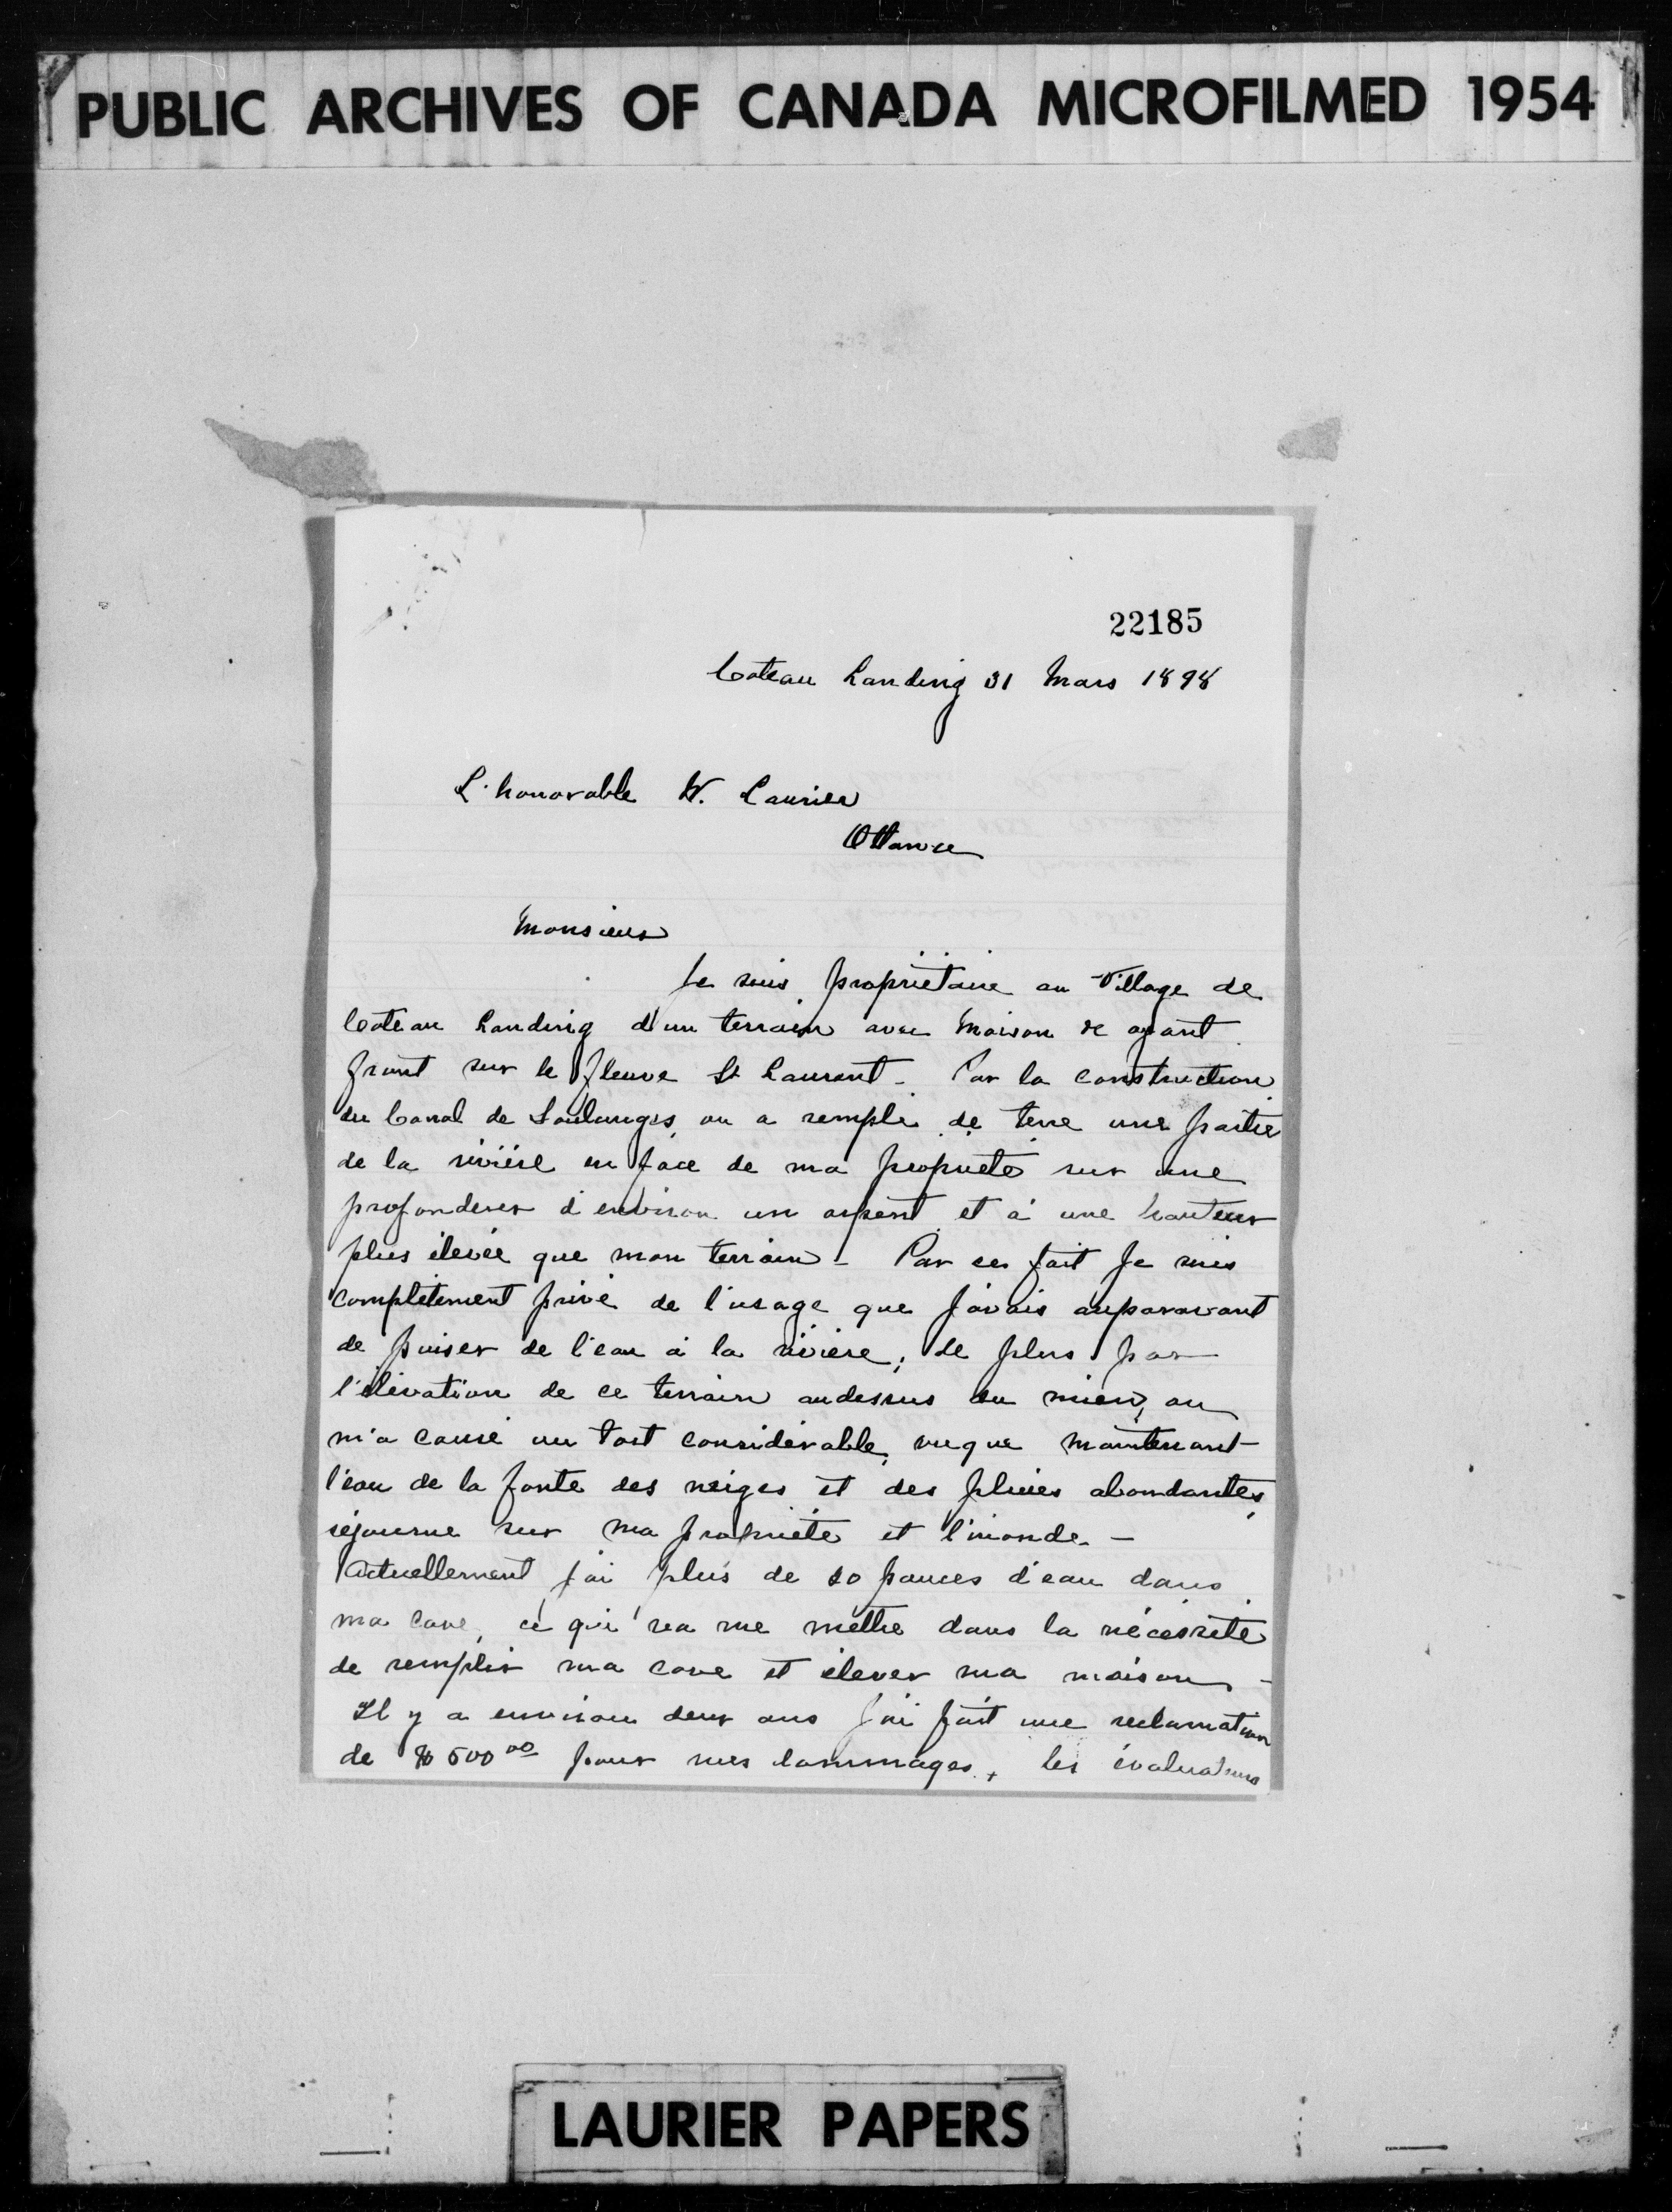 PUBLIC ARCHIVES OF CANADA MICROFILMED 1954
22185
Coteau Landing 31 Mars 1898
L'honorable W. Laurier
Ottawa
Monsieur
Je suis propriétaire au Village de
Coteau Landing d'un terrain avec maison &c ayant
front sur le fleuve St Laurent - Par la construction
du Canal de Soulanges, on a rempli de terre une partie
de la rivière en face de ma propriété sur une
profondeur d'environ un arpent et à une hauteur
plus élevée que mon terrain - Par ce fait Je suis
complètement privé de l'usage que j'avais auparavant
de puiser de l'eau à la rivière; de plus par
l'élévation de ce terrain audessus du mien, on
m'a causé un tort considérable, vuque maintenant
l'eau de la fonte des neiges et des pluies abondantes,
séjourne sur ma propriété et l'inonde. -
Actuellement j'ai plus de 10 pouces d'eau dans
ma cave, ce qui va me mettre dans la nécessité
de remplir ma cave et élever ma maison -
Il y a environ deux ans j'ai fait une réclamation
de $500.00 pour mes dommages, les évaluateurs
LAURIER PAPERS